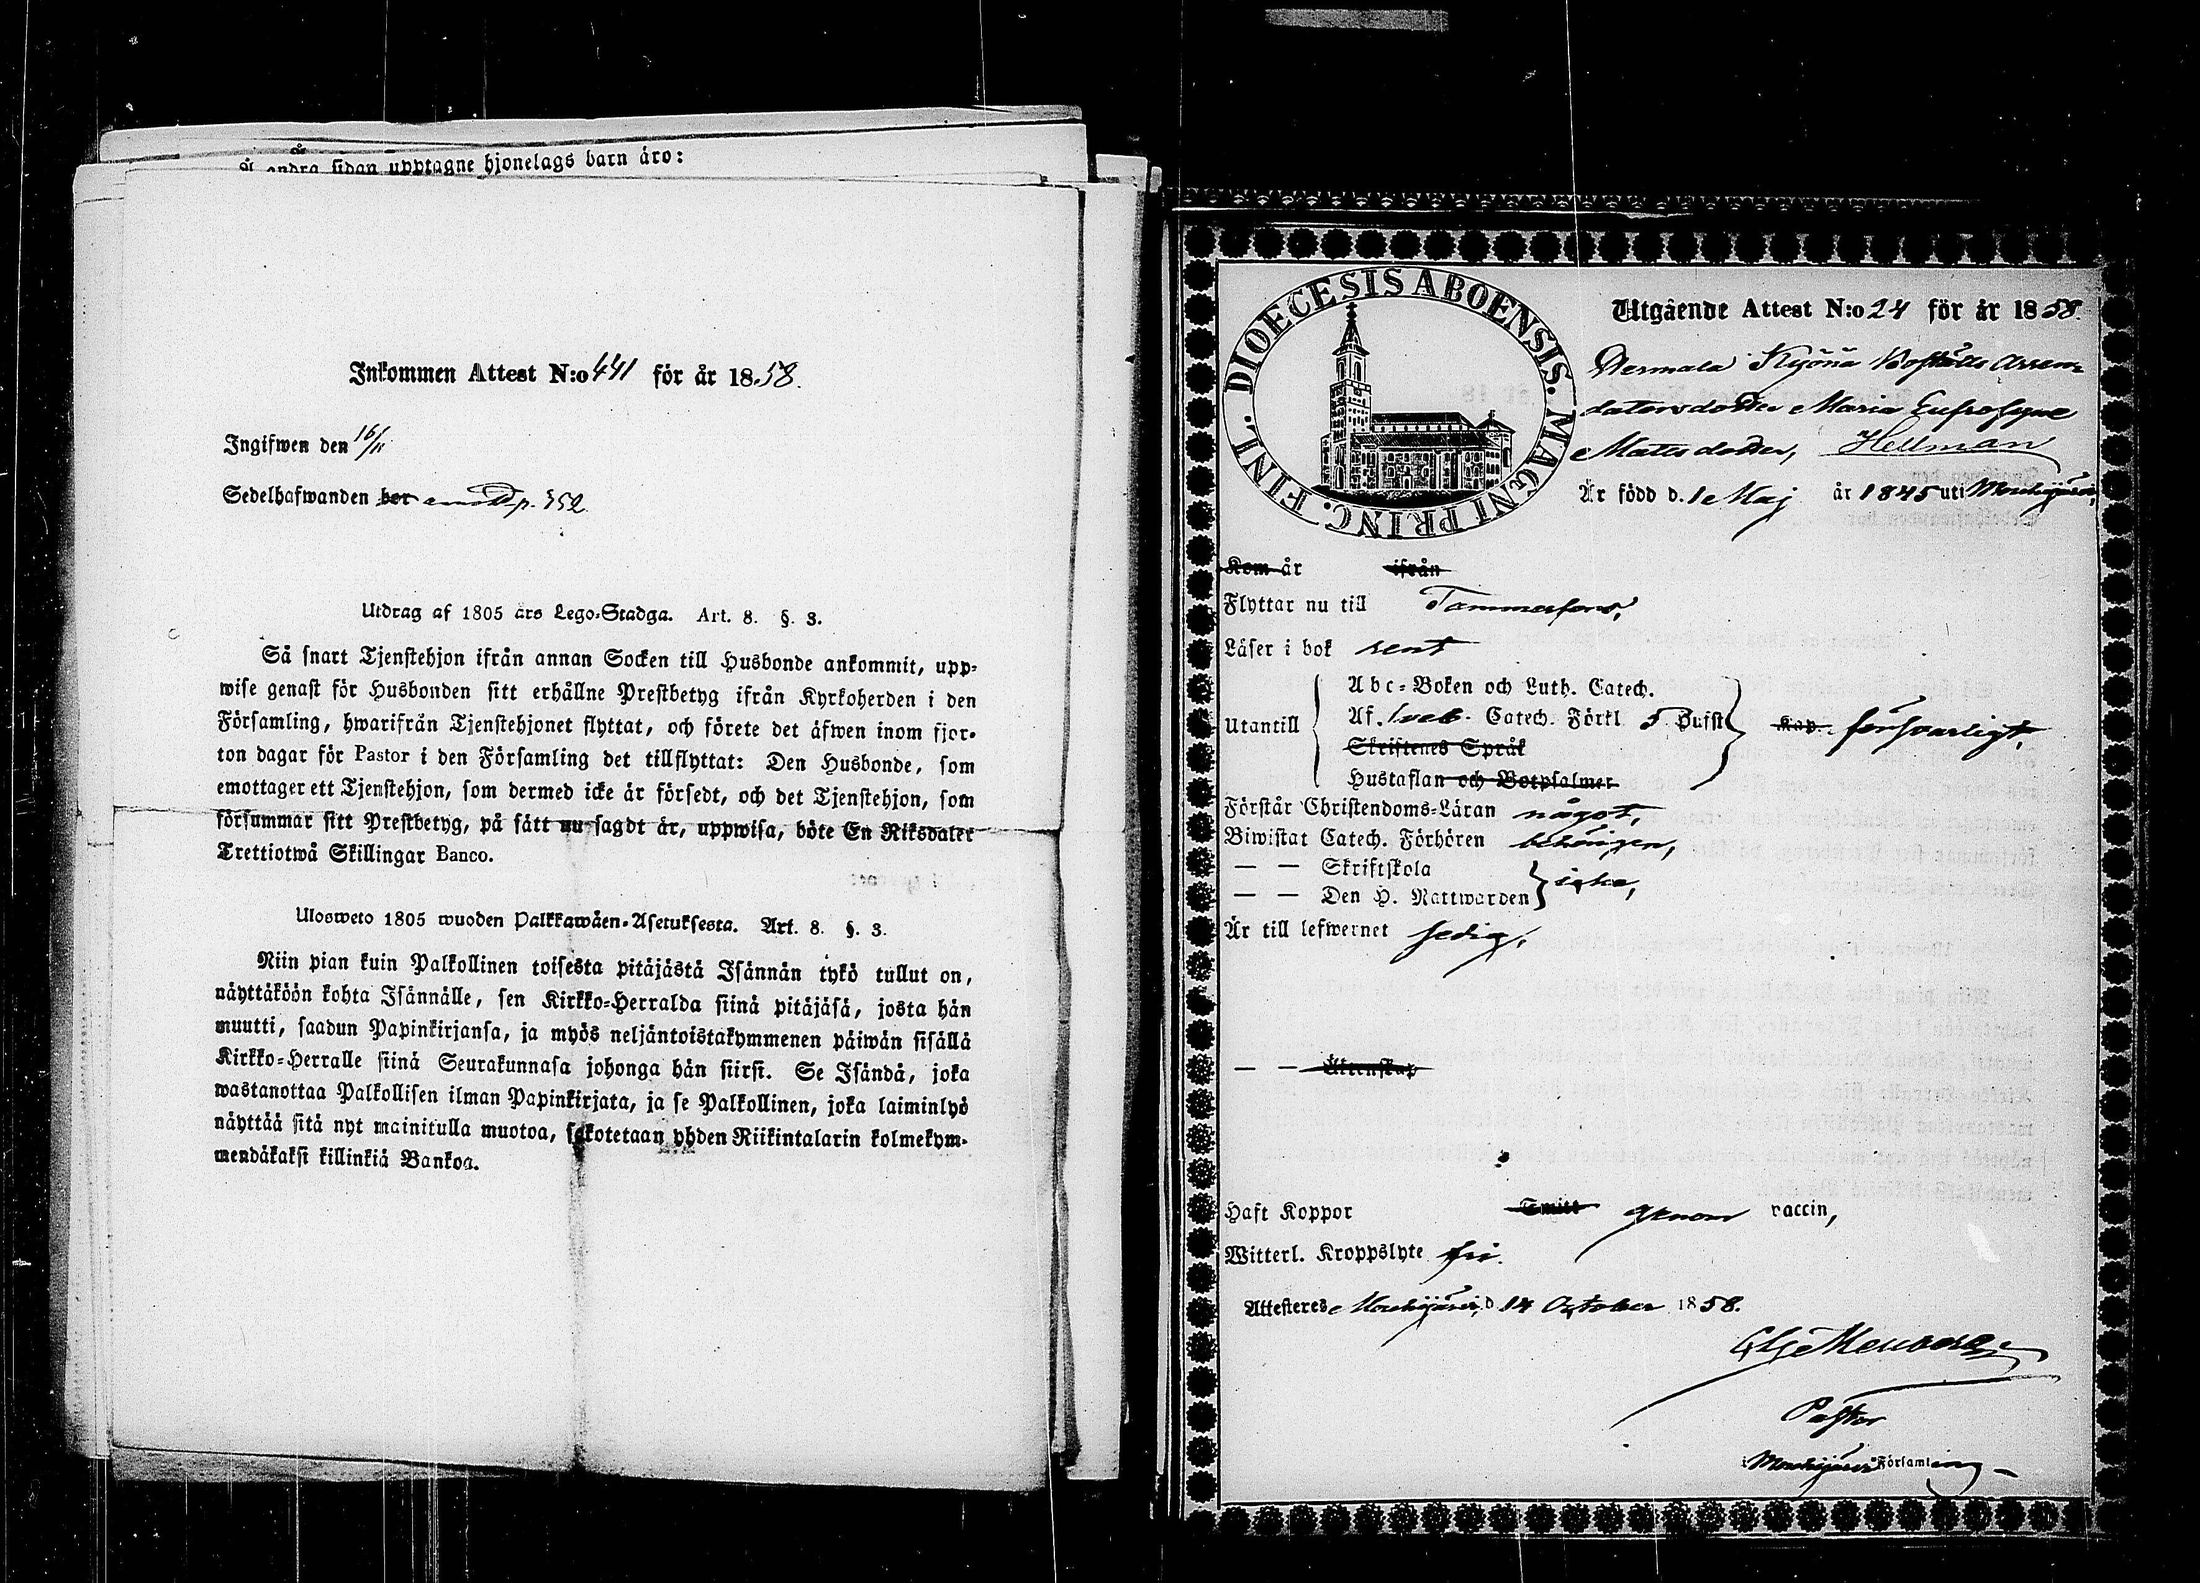 å andra sidan upptagne hjonelags barn äro:
Inkommen Attest N:o 441 för år 1858.
Ingifwen den 16/11
Sedelhafwanden bor p. 352
Utdrag af 1805 års Lego-Stadga. Art. 8. §. 3.
Så snart Tjenstehjon ifrån annan Socken till Husbonde ankommit, upp-
wise genast för Husbonden sitt erhållne Prestbetyg ifrån Kyrkoherden i den
Församling, hwarifrån Tjenstehjonet flyttat, och förete det äfwen inom fjor-
ton dagar för Pastor i den Församling det tillflyttat: Den Husbonde, som
emottager ett Tjenstehjon, som dermed icke är försedt, och det Tjenstehjon, som
försummar sitt Prestbetyg, på sätt nu sagdt är, uppwisa, böte En Riksdaler
Trettiotwå Skillingar Banco.
Ulosweto 1805 wuoden Palkkawäen-Asetuksesta. Art. 8. §. 3.
Niin pian kuin Palkollinen toisesta pitäjästä Isännän tykö tullut on,
näyttäköön kohta Isännälle, sen Kirkko-Herralda siinä pitäjäsä, josta hän
muutti, saadun Papinkirjansa, ja myös neljäntoistakymmenen päiwän sisällä
Kirkko-Herralle siinä Seurakunnasa johonga hän siirsi. Se Isändä, joka
wastanottaa Palkollisen ilman Papinkirjata, ja se Palkollinen, joka laiminlyö
näyttää sitä nyt mainitulla muotoa, sakotetaan yhden Riikintalarin kolmekym-
mendäkaksi killinkiä Bankoa.
DIOECESIS ABOENSIS. MAGNI PRINC. FINL.
Utgående Attest N:o 24 för år 1858.
Kyöna Boställs Arren-
datorsdotter Maria Eufrosyne
Mattsdotter, Hellman
Är född d. 1 Maj år 1845 uti Mouhijärvi,
Kom år ifrån
Flyttar nu till Tammerfors,
Läser i bok rent
Utantill
Abc-Boken och Luth. Catech.
Af. Sveb. Catech. Förkl 5 Hufst Kap. försvarligt,
Skriftenes Språk
Hustaflan och Botpsalmer
Förstår Christendoms-Läran något,
Biwistat Catech. Förhören behörigen,
— — Skriftskola
— — Den H. Nattwarden icke,
Är till lefwernet sedig,
— — Äktenskap
Haft Koppor Smitt genom vaccin,
Witterl. Kroppslyte fri.
Attesteres Mouhijärvi, d 14 October 1858.
Pastor
i Mouhijärvi Församling